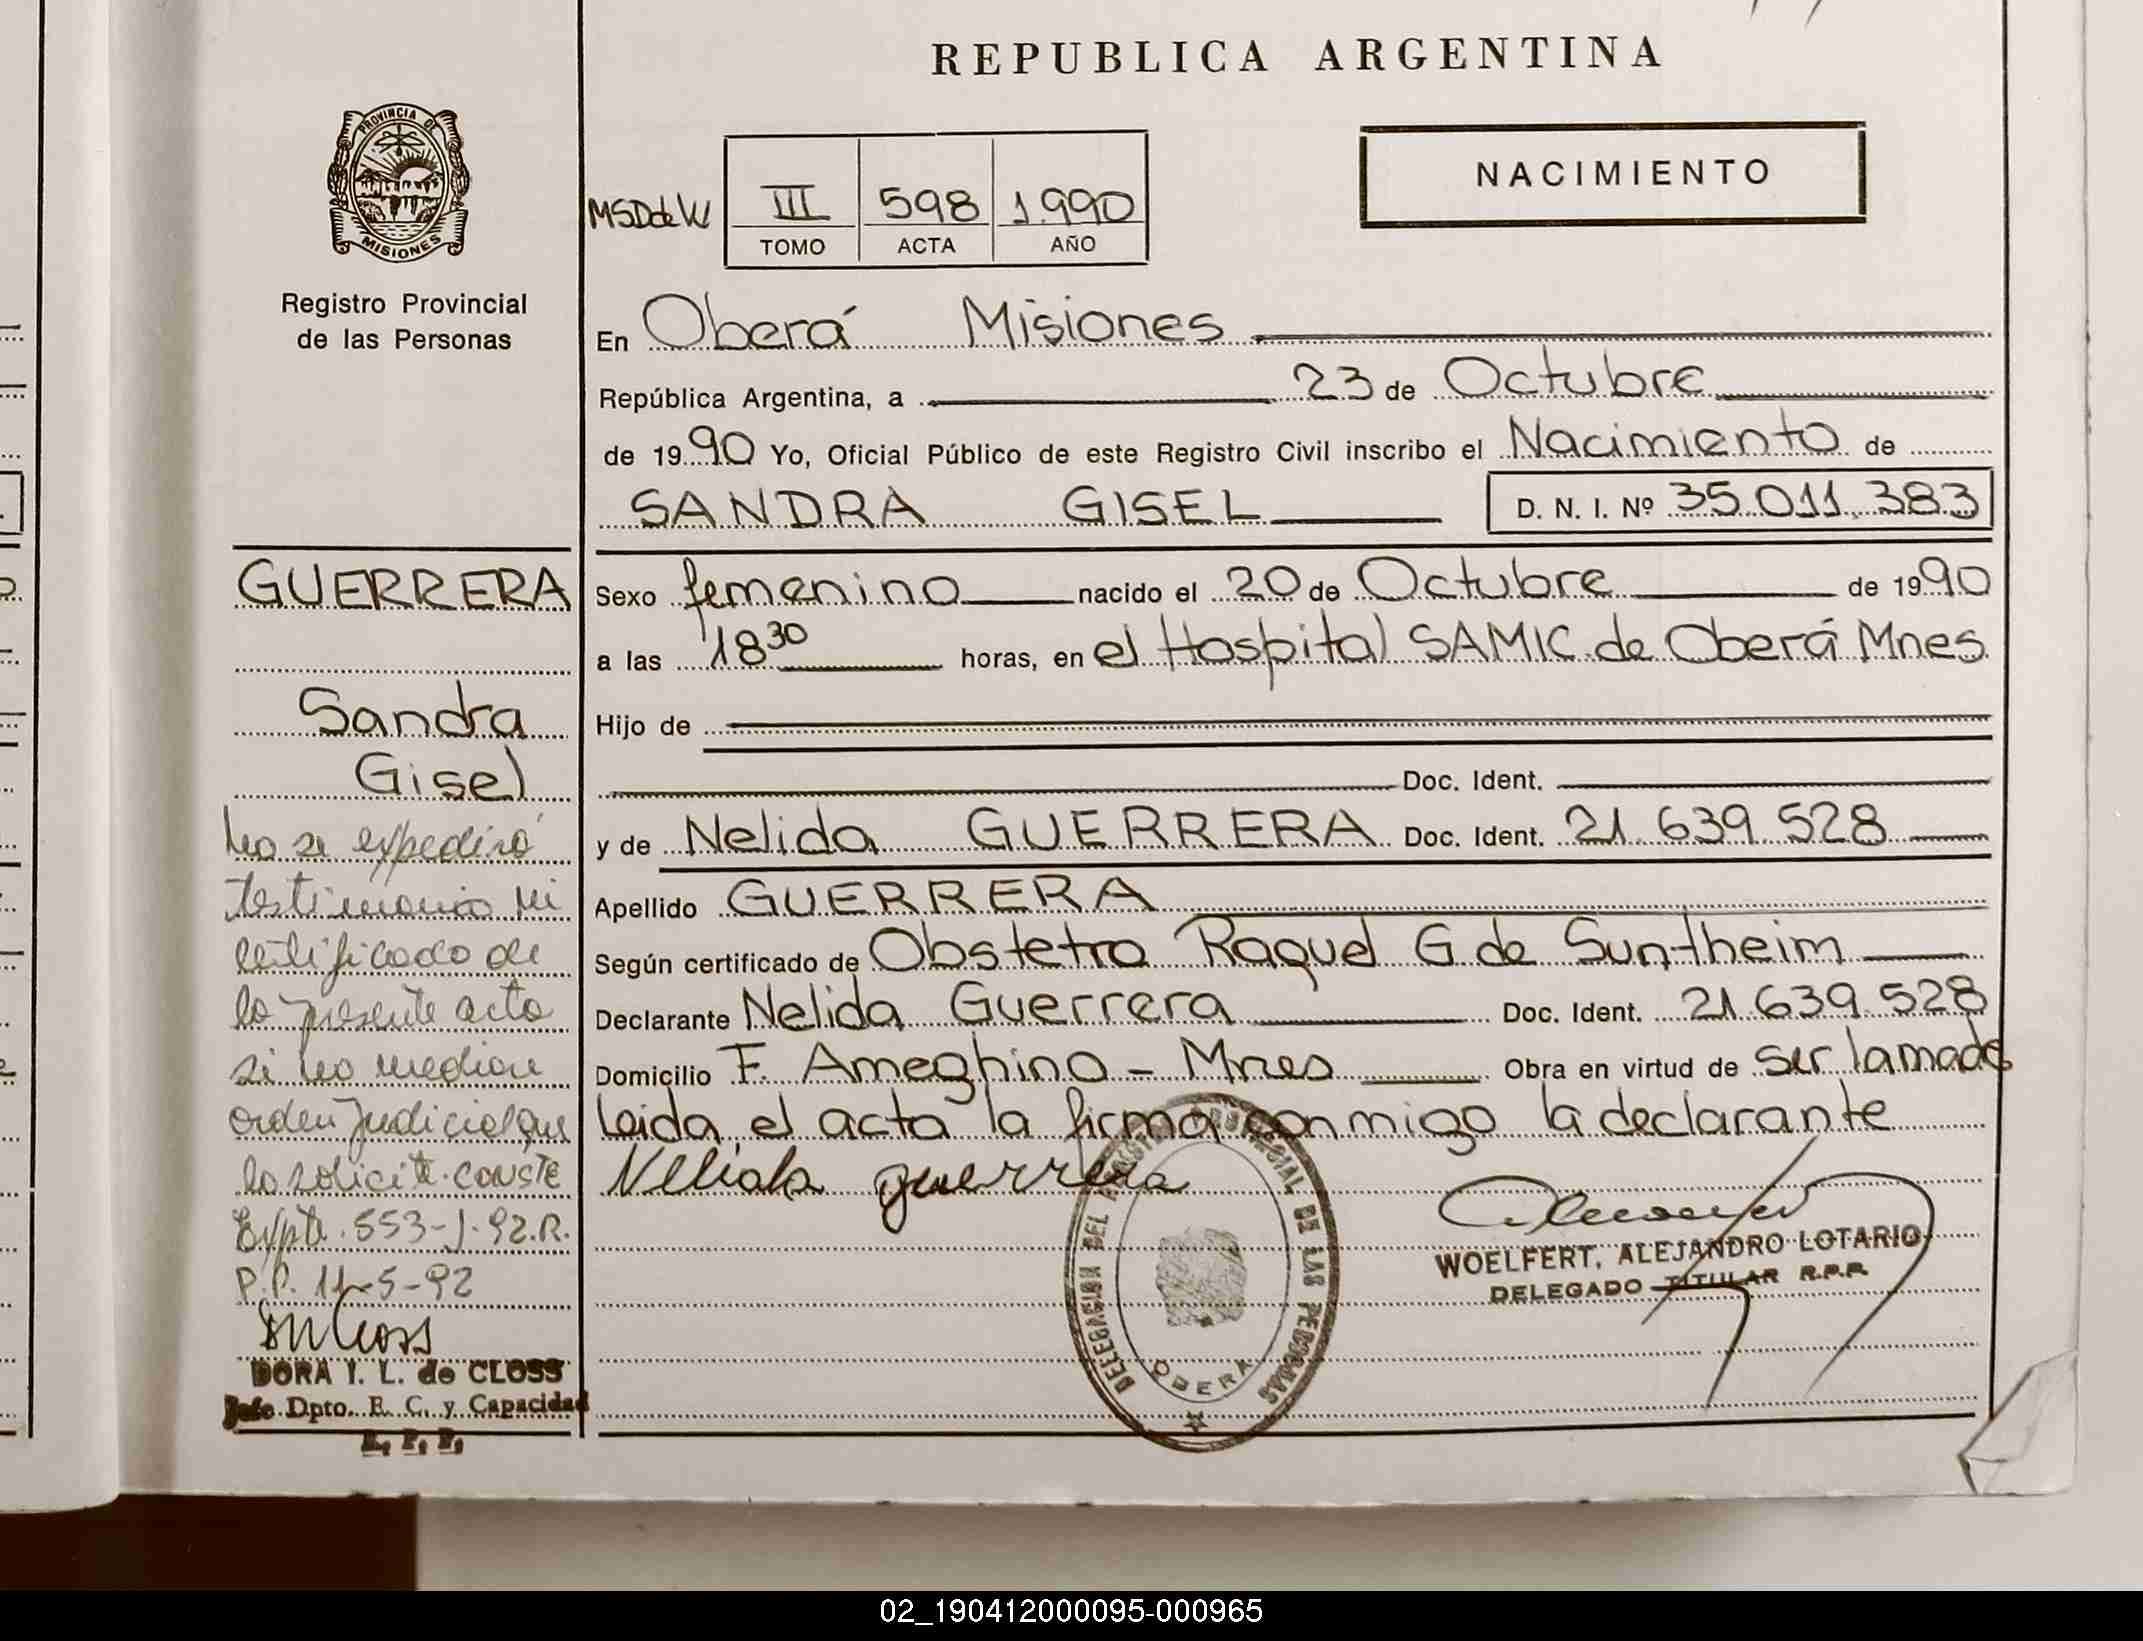 REPUBLICA ARGENTINA
PROVINCIA DE
MISIONES
Registro Provincial
de las Personas
NACIMIENTO
MSDdeW
III 598 1.990
TOMO ACTA AÑO
En Oberá Misiones
República Argentina, a 23 de Octubre
de 1990 Yo, Oficial Público de este Registro Civil inscribo el Nacimiento de
SANDRA GISEL D. N. I. Nº 35.011.383
Sexo femenino nacido el 20 de Octubre de 1990
a las 18 30 horas, en el Hospital SAMIC de Oberá Mnes
Hijo de
Doc. Ident.
y de Nelida GUERRERA Doc. Ident. 21.639.528
Apellido GUERRERA
Según certificado de Obstetra Raquel G de Suntheim
Declarante Nelida Guerrera Doc. Ident. 21.639.528
Domicilio F. Ameghino - Mnes Obra en virtud de ser la madre
Leida el acta la firma conmigo la declarante
Nelida guerrera
DELEGACION DEL REGISTRO PROVINCIAL DE LAS PERSONAS
OBERA
WOELFERT, ALEJANDRO LOTARIO
DELEGADO TITULAR R.P.P.
GUERRERA
Sandra
Gisel
No se expedirá
testimonio ni
certificado de
la presente acta
si no mediare
orden judicial que
lo solicite. conste
Expte. 553-J-92.R.
P.P. 11-5-92
DORA I. L. de CLOSS
Jefe Dpto. E. C. y Capacidad
R. P. P.
02_190412000095-000965